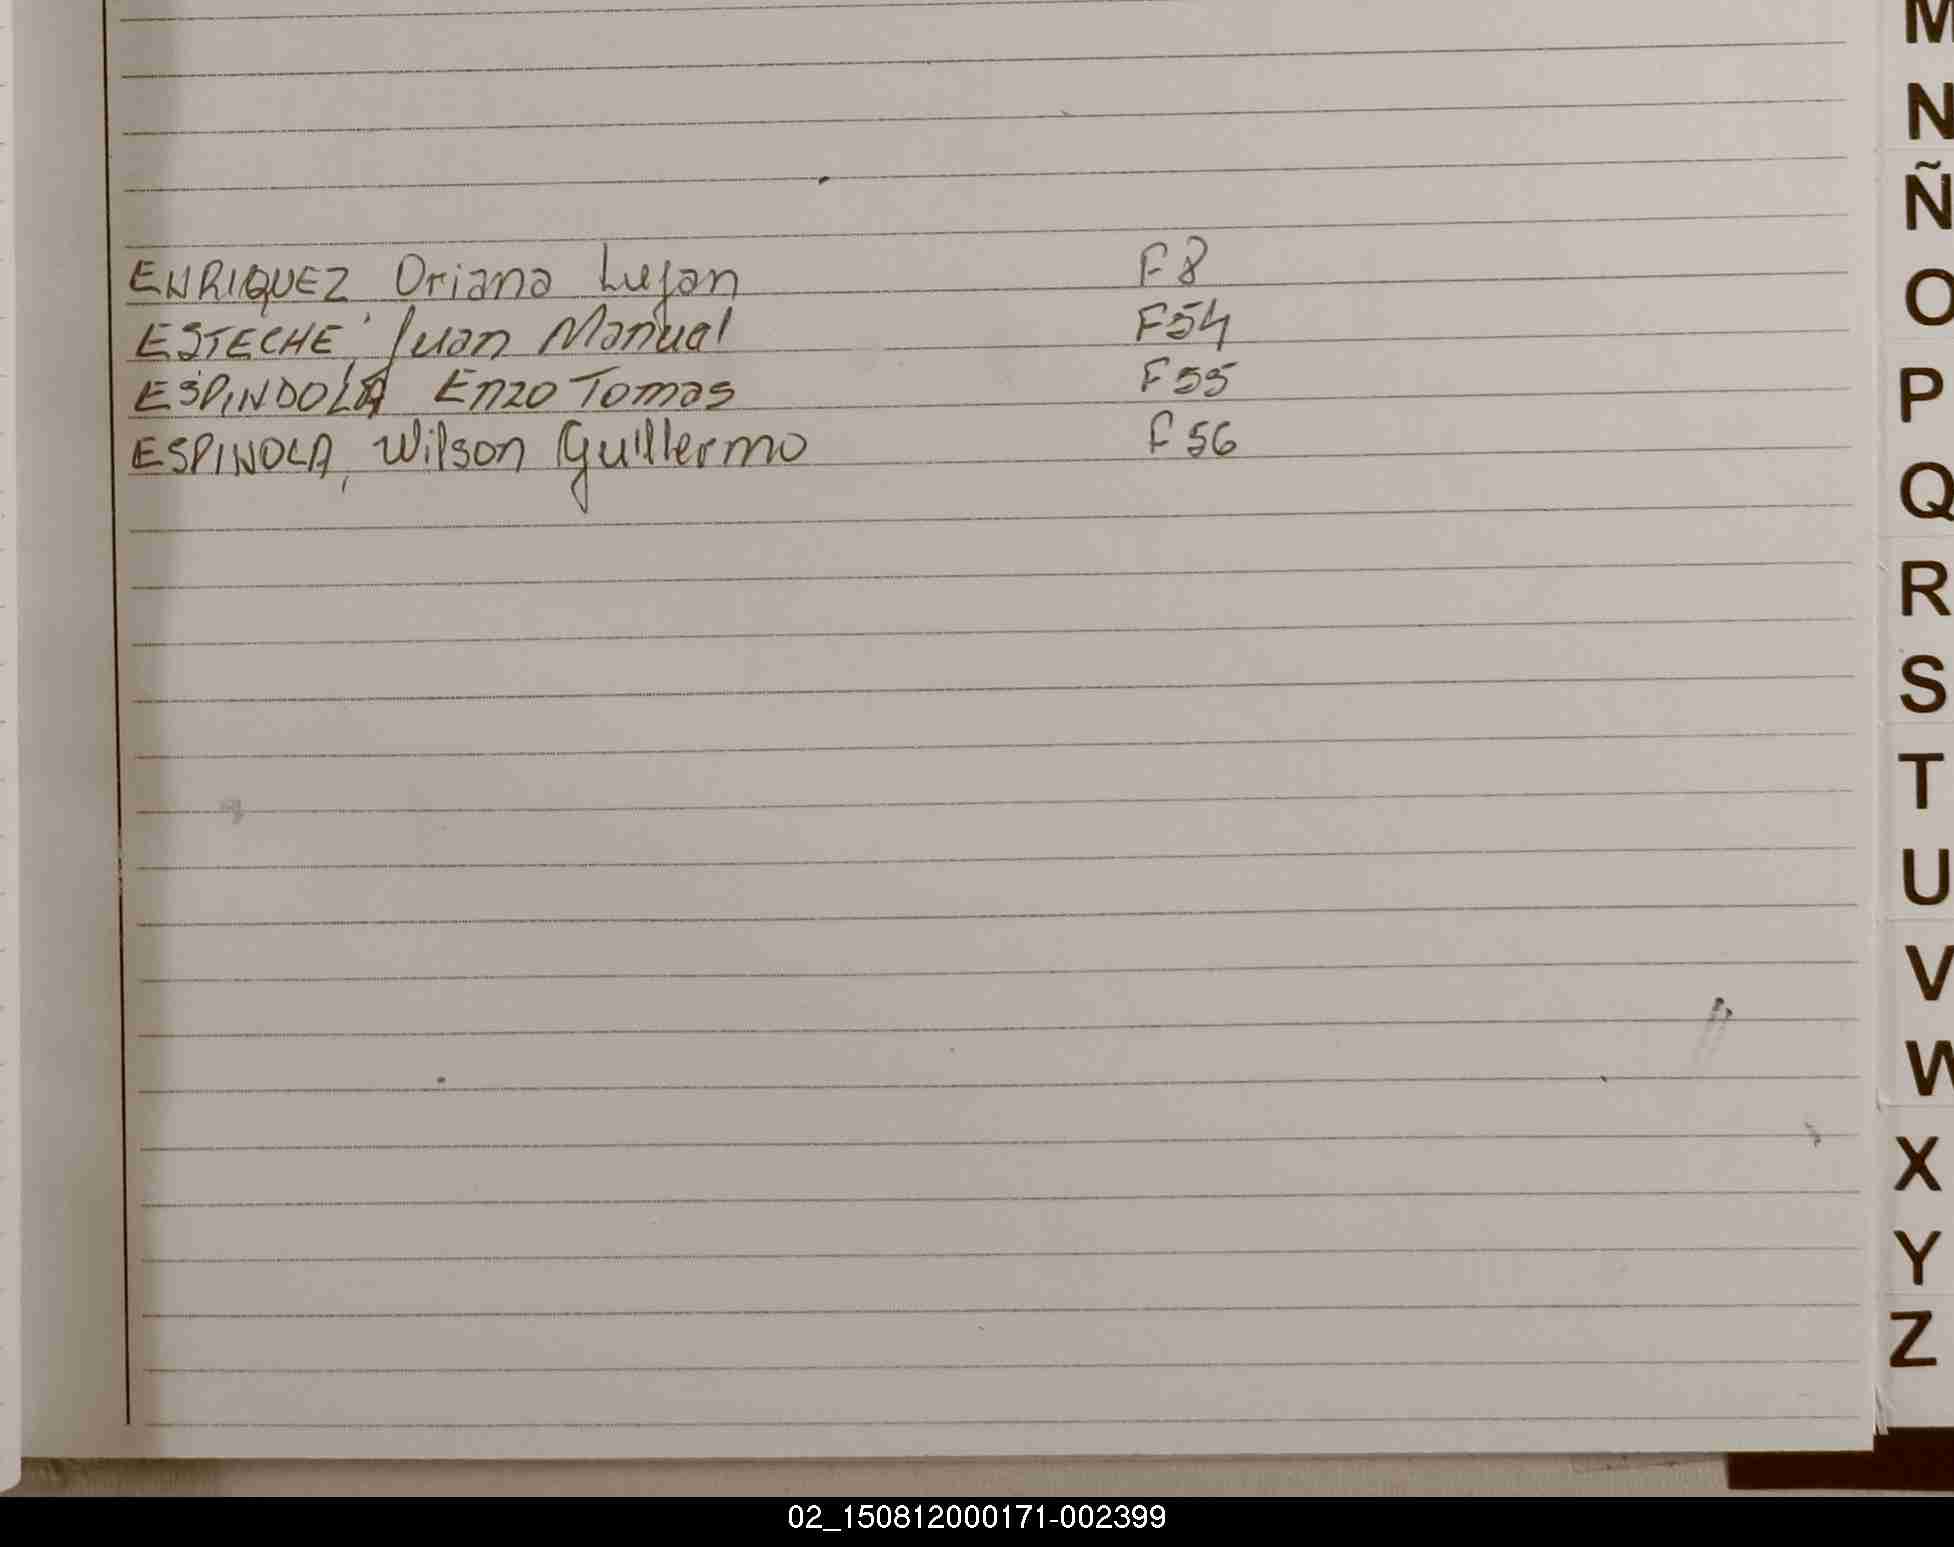 ENRIQUEZ Oriana Lujan F 8
ESTECHE, Juan Manual F54
ESPINDOLA Enzo Tomas F55
ESPINOLA, Wilson Guillermo F 56
M
N
Ñ
O
P
Q
R
S
T
U
V
W
X
Y
Z
02_150812000171-002399